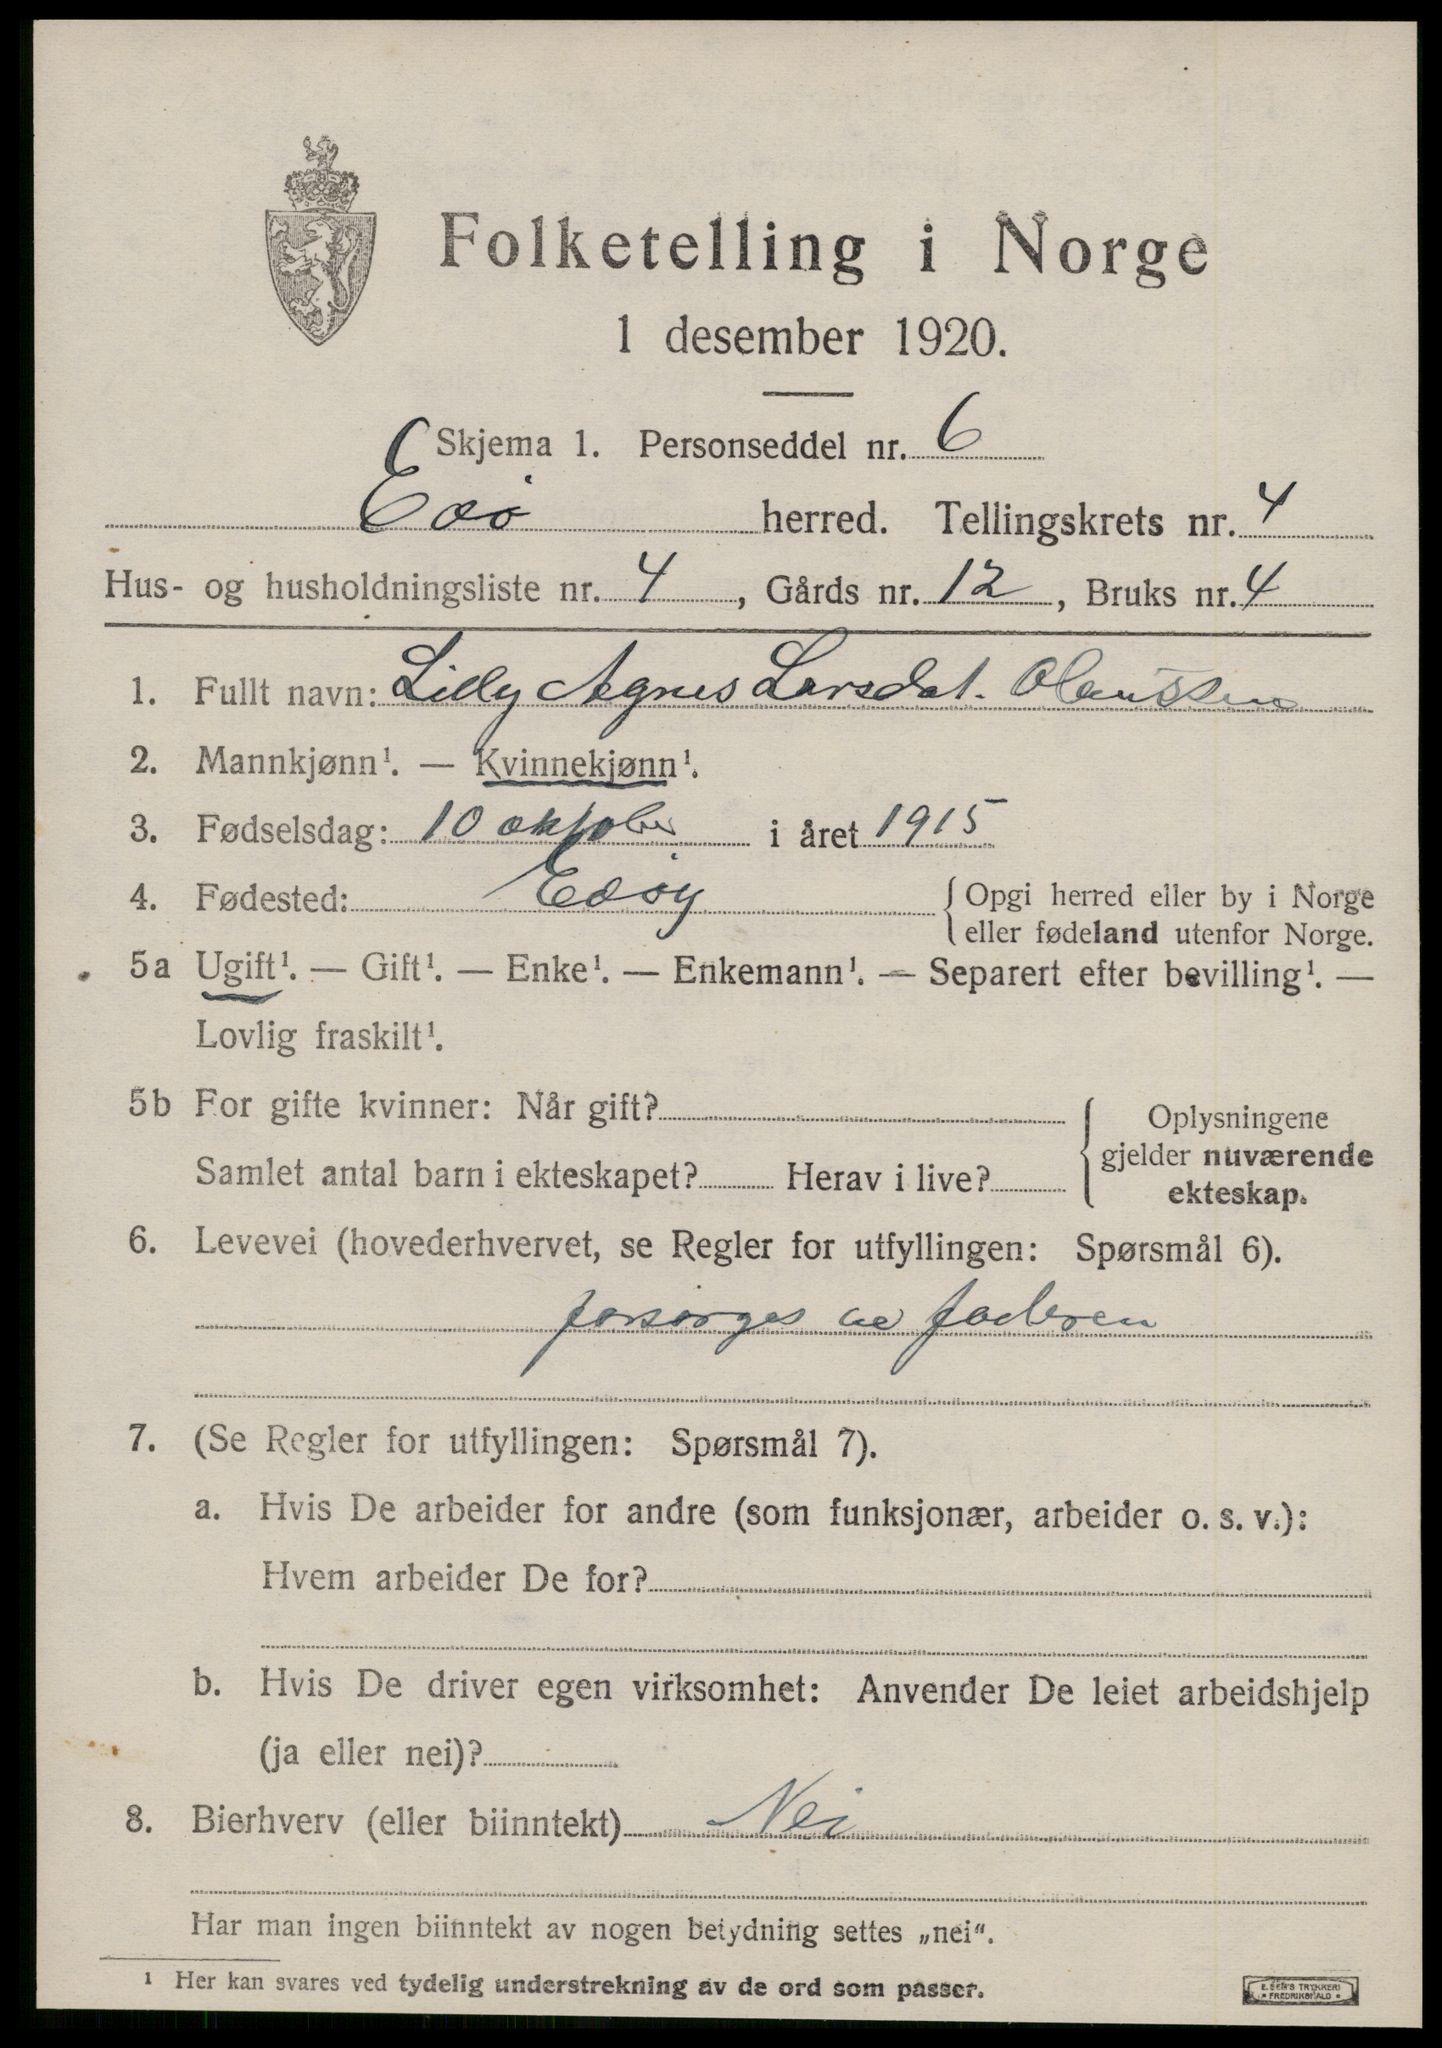 Folketelling i Norge
1 desember 1920.
Skjema 1. Personseddel nr. 6
Edø herred. Tellingskrets nr. 4
Hus- og husholdningsliste nr. 4, Gårds nr. 12, Bruks nr. 4
1. Fullt navn: Lilly Agnes Larsdat. Olaussen
2. Mannkjønn¹. — Kvinnekjønn¹.
3. Fødselsdag: 10 oktober i året 1915
4. Fødested: Edøy { Opgi herred eller by i Norge
eller fødeland utenfor Norge.
5a Ugift¹. — Gift¹. — Enke¹. — Enkemann¹. — Separert efter bevilling¹. —
Lovlig fraskilt¹.
5b For gifte kvinner: Når gift?
Samlet antal barn i ekteskapet? Herav i live?
{ Oplysningene
gjelder nuværende
ekteskap.
6. Levevei (hovederhvervet, se Regler for utfyllingen: Spørsmål 6).
forsørges av faderen
7. (Se Regler for utfyllingen: Spørsmål 7).
a. Hvis De arbeider for andre (som funksjonær, arbeider o. s. v.):
Hvem arbeider De for?
b. Hvis De driver egen virksomhet: Anvender De leiet arbeidshjelp
(ja eller nei)?
8. Bierhverv (eller biinntekt) Nei
Har man ingen biinntekt av nogen betydning settes „nei“.
¹ Her kan svares ved tydelig understrekning av de ord som passer.
E. SEM'S TRYKKERI
FREDRIKSHALD